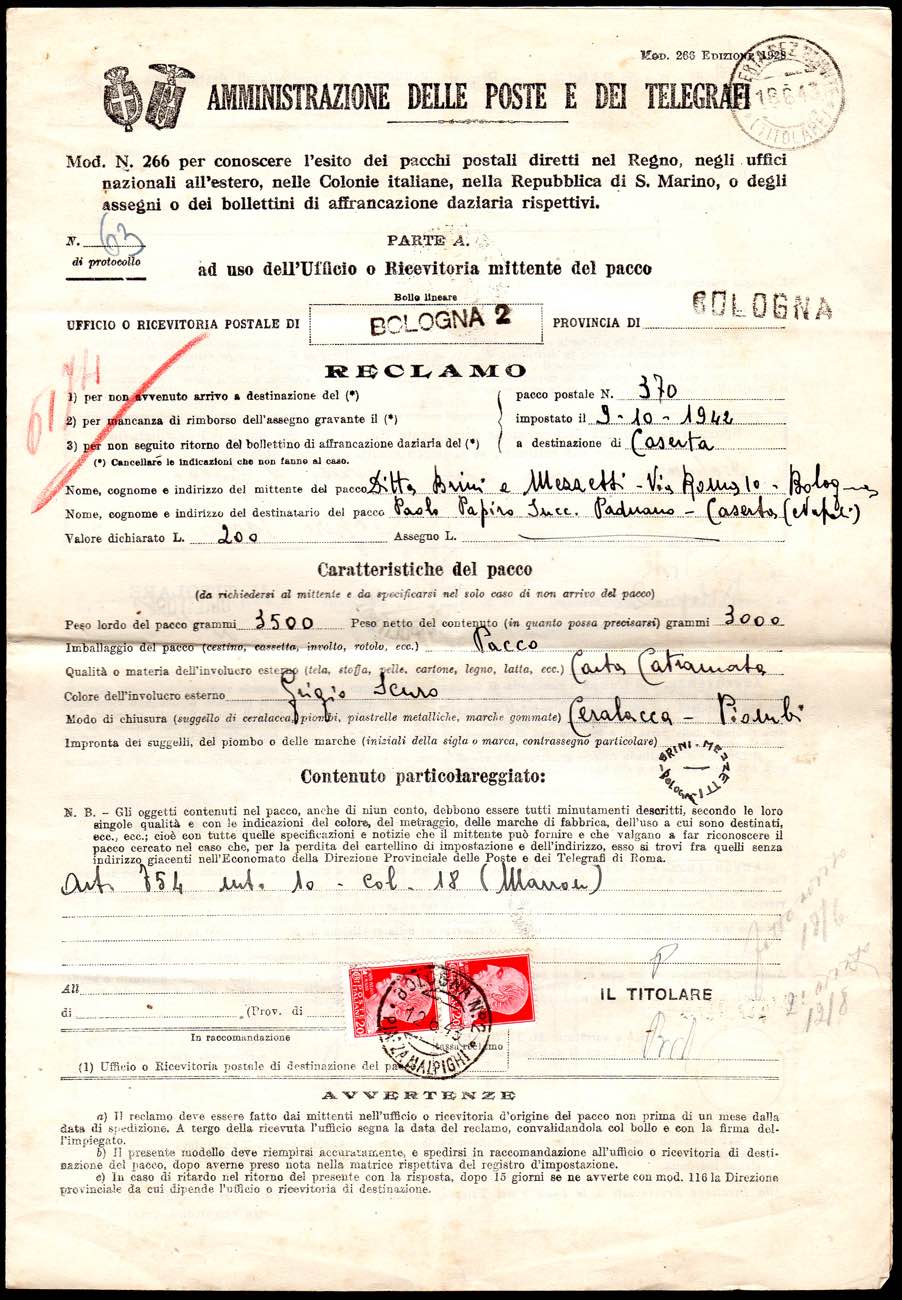 MOD. 266 EDIZIONE 1928
AMMINISTRAZIONE DELLE POSTE E DEI TELEGRAFI
(TITOLARE)
Mod. N. 266 per conoscere l'esito dei pacchi postali diretti nel Regno, negli uffici
nazionali all'estero, nelle Colonie italiane, nella Repubblica di S. Marino, o degli
assegni o dei bollettini di affrancazione daziaria rispettivi.
N. 63
di protocollo
PARTE A.
ad uso dell'Ufficio o Ricevitoria mittente del pacco
Bollo lineare
UFFICIO O RICEVITORIA POSTALE DI BOLOGNA 2 PROVINCIA DI BOLOGNA
RECLAMO
1) per non avvenuto arrivo a destinazione del (*) pacco postale N. 370
2) per mancanza di rimborso dell'assegno gravante il (*) impostato il 9-10-1942
3) per non seguito ritorno del bollettino di affrancazione daziaria del (*) a destinazione di Caserta
(*) Cancellare le indicazioni che non fanno al caso.
Nome, cognome e indirizzo del mittente del pacco Ditta Brini e Mezzetti - Via Roma 10 - Bologna
Nome, cognome e indirizzo del destinatario del pacco Paolo Papiro Succ. Paduano - Caserta (Napoli)
Valore dichiarato L. 200 Assegno L.
Caratteristiche del pacco
(da richiedersi al mittente e da specificarsi nel solo caso di non arrivo del pacco)
Peso lordo del pacco grammi 3500 Peso netto del contenuto (in quanto possa precisarsi) grammi 3000
Imballaggio del pacco (cestino, cassetta, involto, rotolo, ecc.) Pacco
Qualità o materia dell'involucro esterno (tela, stoffa, pelle, cartone, legno, latta, ecc.) Carta Catramata
Colore dell'involucro esterno Grigio Scuro
Modo di chiusura (suggello di ceralacca, piombi, piastrelle metalliche, marche gommate) Ceralacca - Piombi
Impronta dei suggelli, del piombo o delle marche (iniziali della sigla o marca, contrassegno particolare)
BRINI-MEZZETTI
Bologna
Contenuto particolareggiato:
N. B. - Gli oggetti contenuti nel pacco, anche di niun conto, debbono essere tutti minutamente descritti, secondo le loro
singole qualità e con le indicazioni del colore, del metraggio, delle marche di fabbrica, dell'uso a cui sono destinati,
ecc., ecc.; cioè con tutte quelle specificazioni e notizie che il mittente può fornire e che valgano a far riconoscere il
pacco cercato nel caso che, per la perdita del cartellino di impostazione e dell'indirizzo, esso si trovi fra quelli senza
indirizzo giacenti nell'Economato della Direzione Provinciale delle Poste e dei Telegrafi di Roma.
Art. 754 mt. 10 - col. 18 (Marron)
18/6
12/8
All
di (Prov. di
IL TITOLARE
BOLOGNA N°2
P.ZZA MALPIGHI
In raccomandazione
tassa reclamo
(1) Ufficio o Ricevitoria postale di destinazione del pa
AVVERTENZE
a) Il reclamo deve essere fatto dai mittenti nell'ufficio o ricevitoria d'origine del pacco non prima di un mese dalla
data di spedizione. A tergo della ricevuta l'ufficio segna la data del reclamo, convalidandola col bollo e con la firma del-
l'impiegato.
b) Il presente modello deve riempirsi accuratamente, e spedirsi in raccomandazione all'ufficio o ricevitoria di desti-
nazione del pacco, dopo averne preso nota nella matrice rispettiva del registro d'impostazione.
c) In caso di ritardo nel ritorno del presente con la risposta, dopo 15 giorni se ne avverte con mod. 116 la Direzione
provinciale da cui dipende l'ufficio o ricevitoria di destinazione.